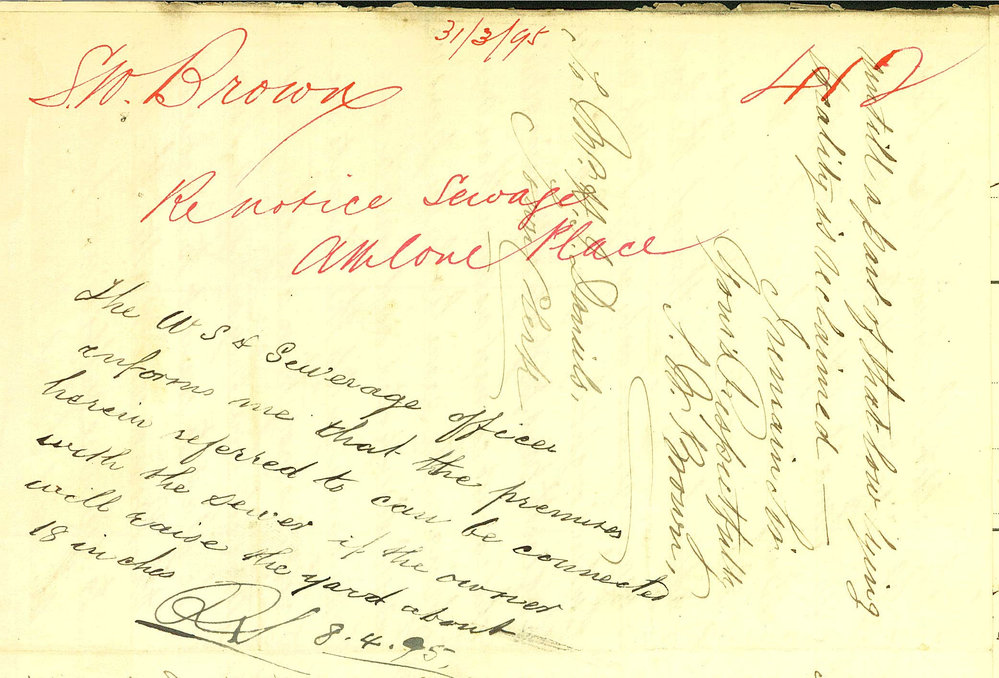 31/3/95
S.W. Brown
412
Re notice Sewage
Athlone Place
The W S & Sewerage officer
informs me that the premises
herein referred to can be connected
with the sewer if the owner
will raise the yard about
18 inches
8.4.95.
until a part of that low lying
locality is reclaimed —
I remain Sir
Yours Respectfully
S. W. Brown,
Daniels,
Town Clerk